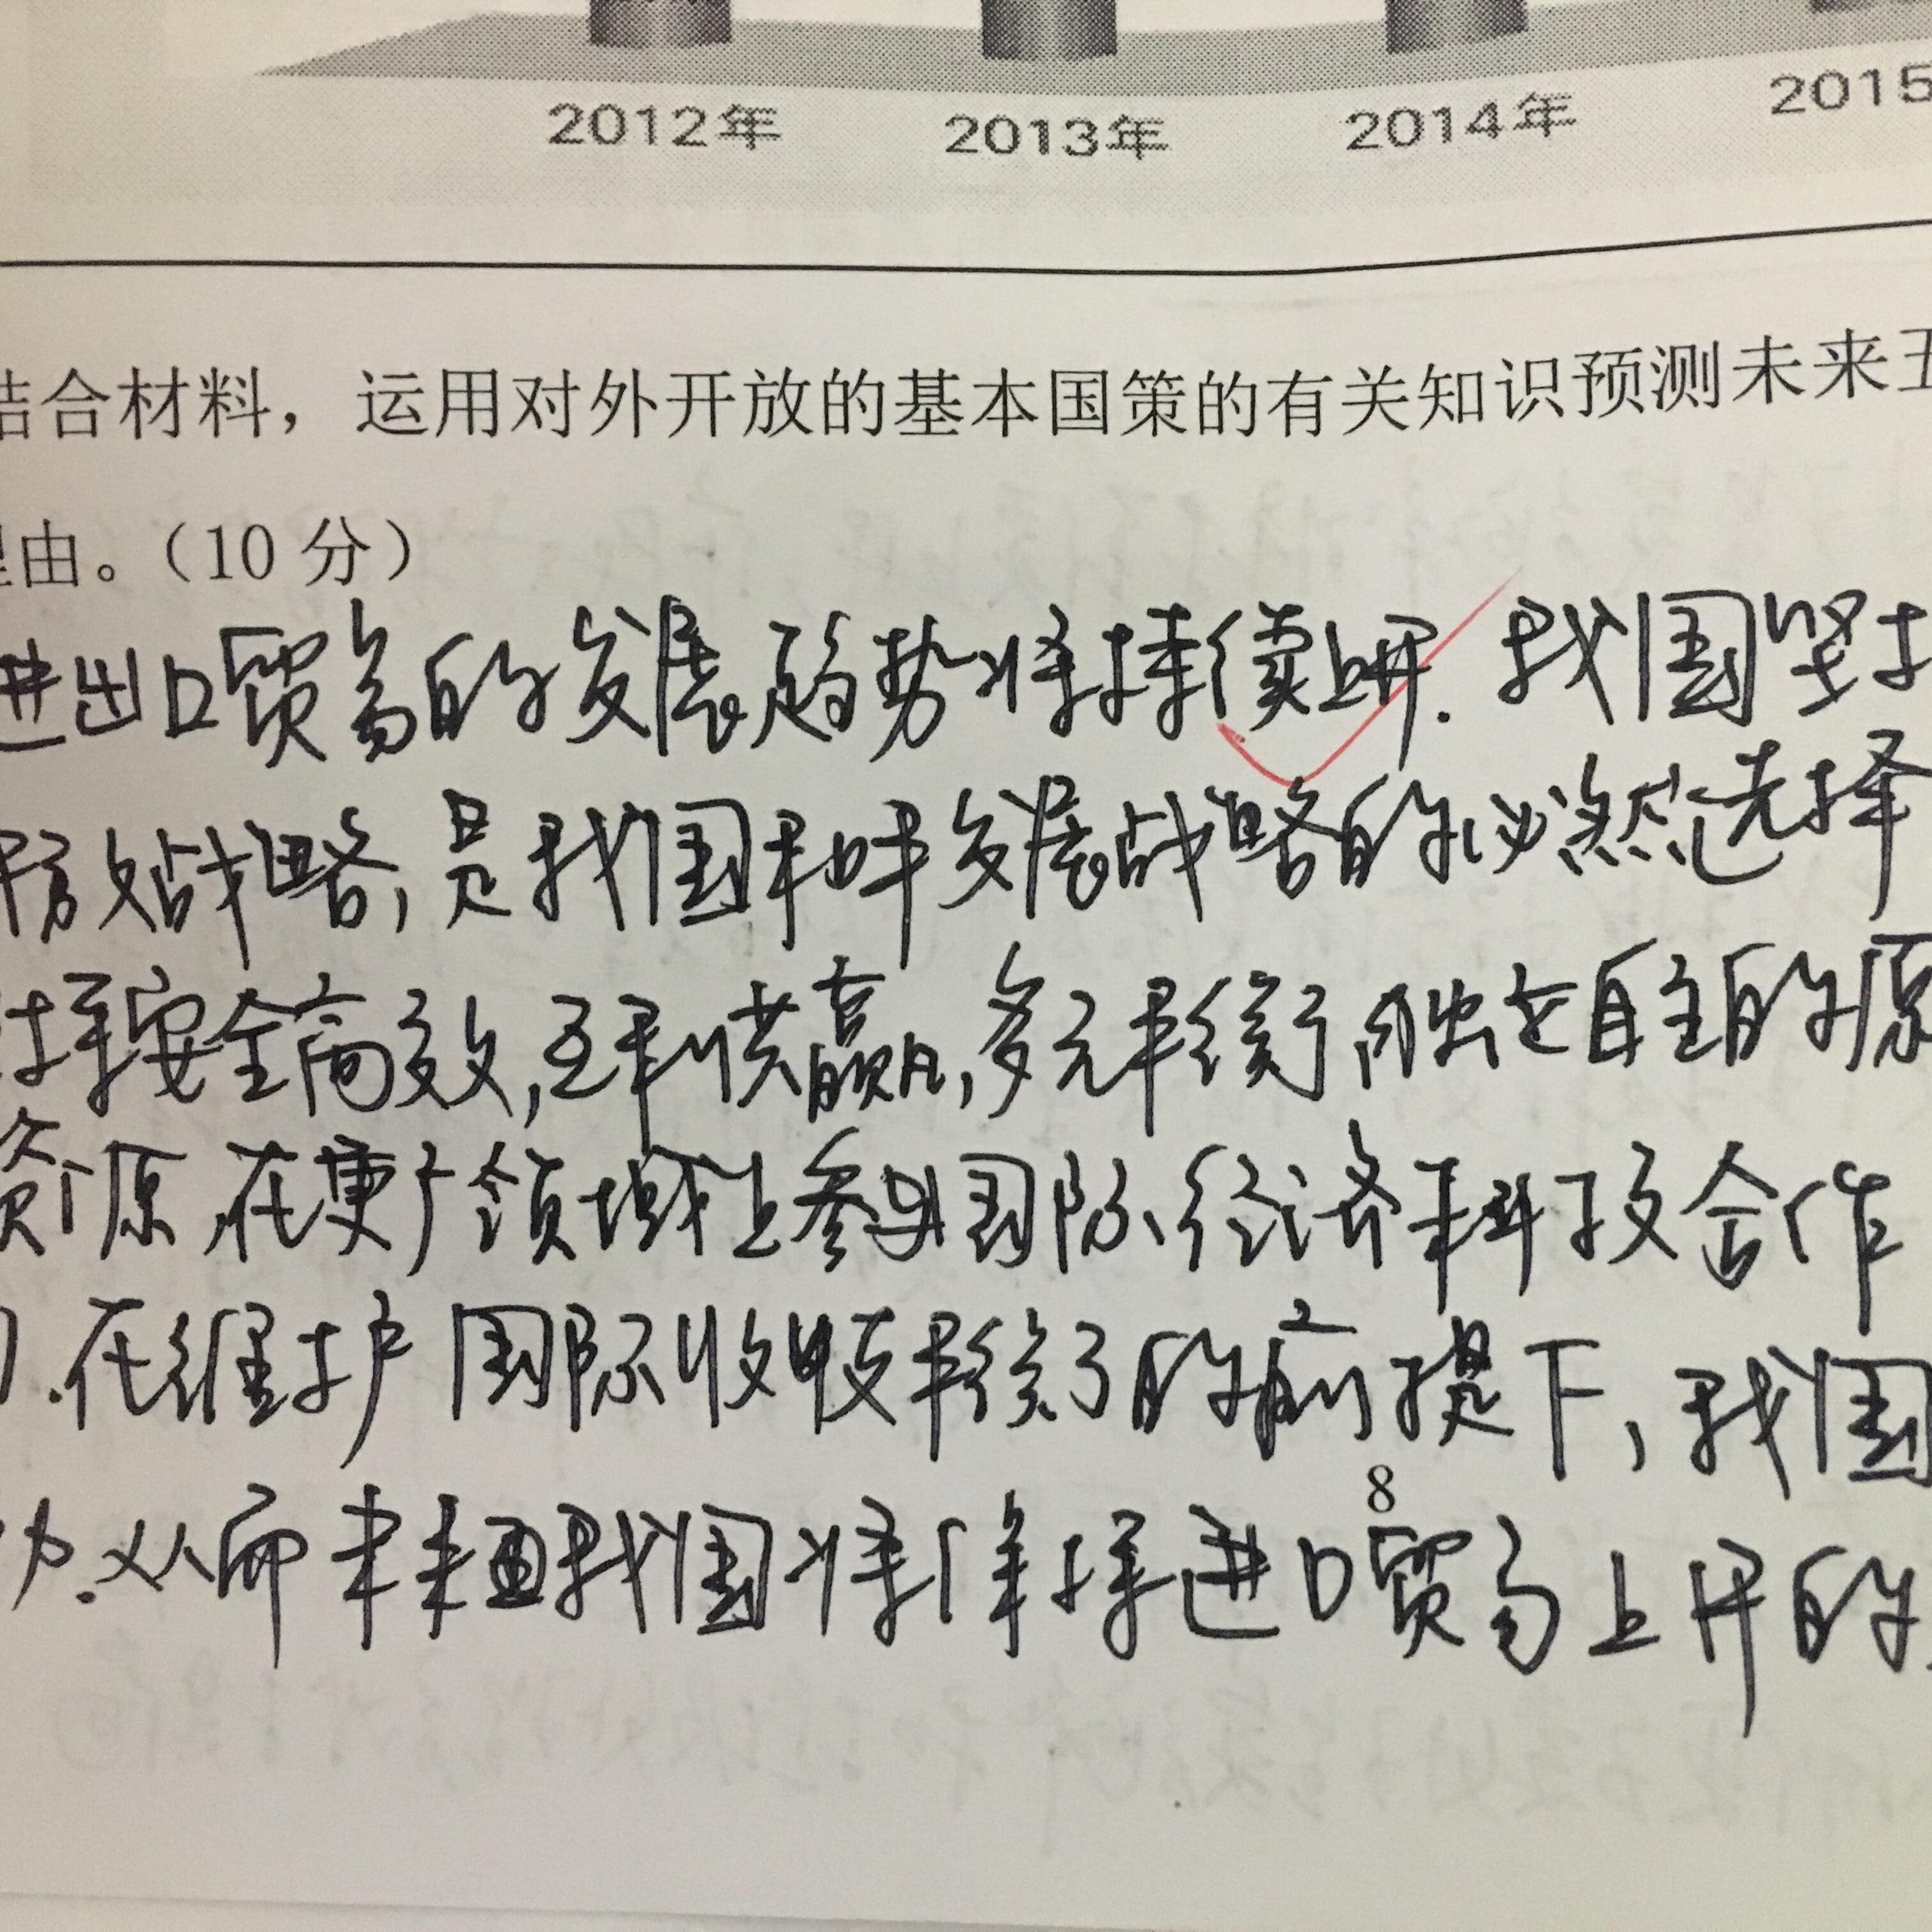 2012年 2013年 2014年 2015
结合材料，运用对外开放的基本国策的有关知识预测未来五
理由。（10 分）
进出口贸易的发展趋势将持续上升. 我国坚持
放战略,是我国和平发展战略的必然选择
持安全高效,互利共赢,多元平衡,独立自主的原
资源,在更广领域上参与国际经济科技合作
.在维护国际收支平衡的前提下,我国
.从而未来我国将保持进口贸易上升的
8